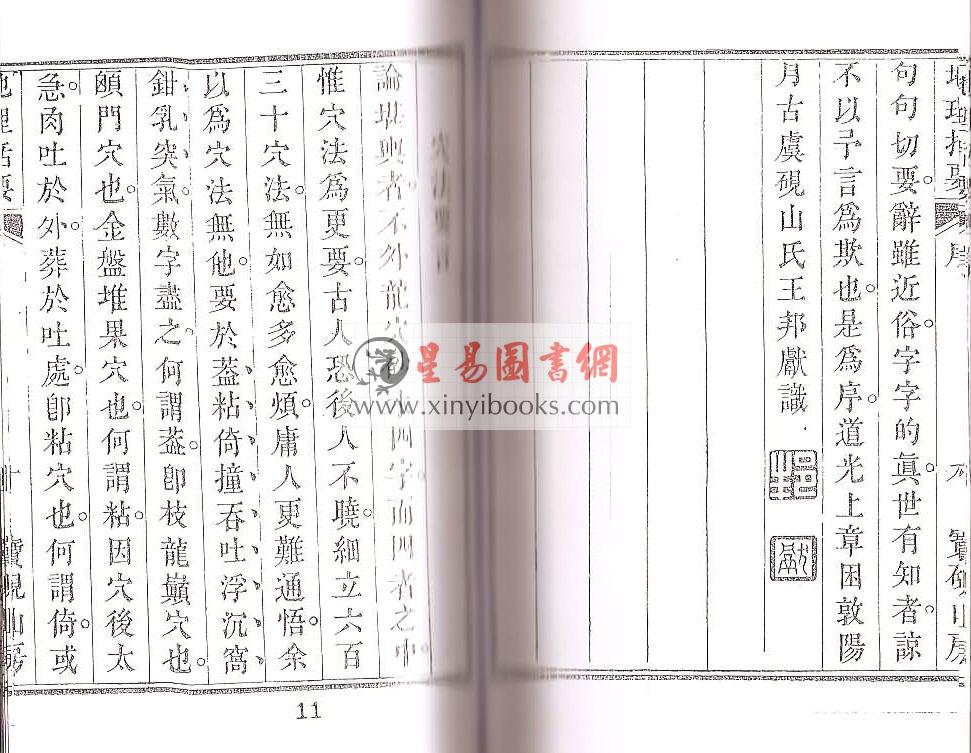 句句切要。辭雖近俗。字字的眞。世有知者。諒
不以予言爲欺也。是爲序。道光上章困敦陽
月古虞硯山氏王邦獻識
穴法要言
論堪輿者不外龍穴砂水四字而四者之中
惟穴法爲更要。古人恐後人不曉。細立六百
三十穴法。無如愈多愈煩。庸人更難通悟。余
以爲穴法無他。要於葢、粘、倚、撞、吞、吐、浮、沉、窩、
鉗、乳、突、氣。數字盡之。何謂葢。卽枝龍巔穴也。
頤門穴也。金盤堆果穴也。何謂粘。因穴後太
急。肉吐於外。葬於吐處。卽粘穴也。何謂倚。或
十
寶硯山房
11
星易圖書網
www.xinyibooks.com